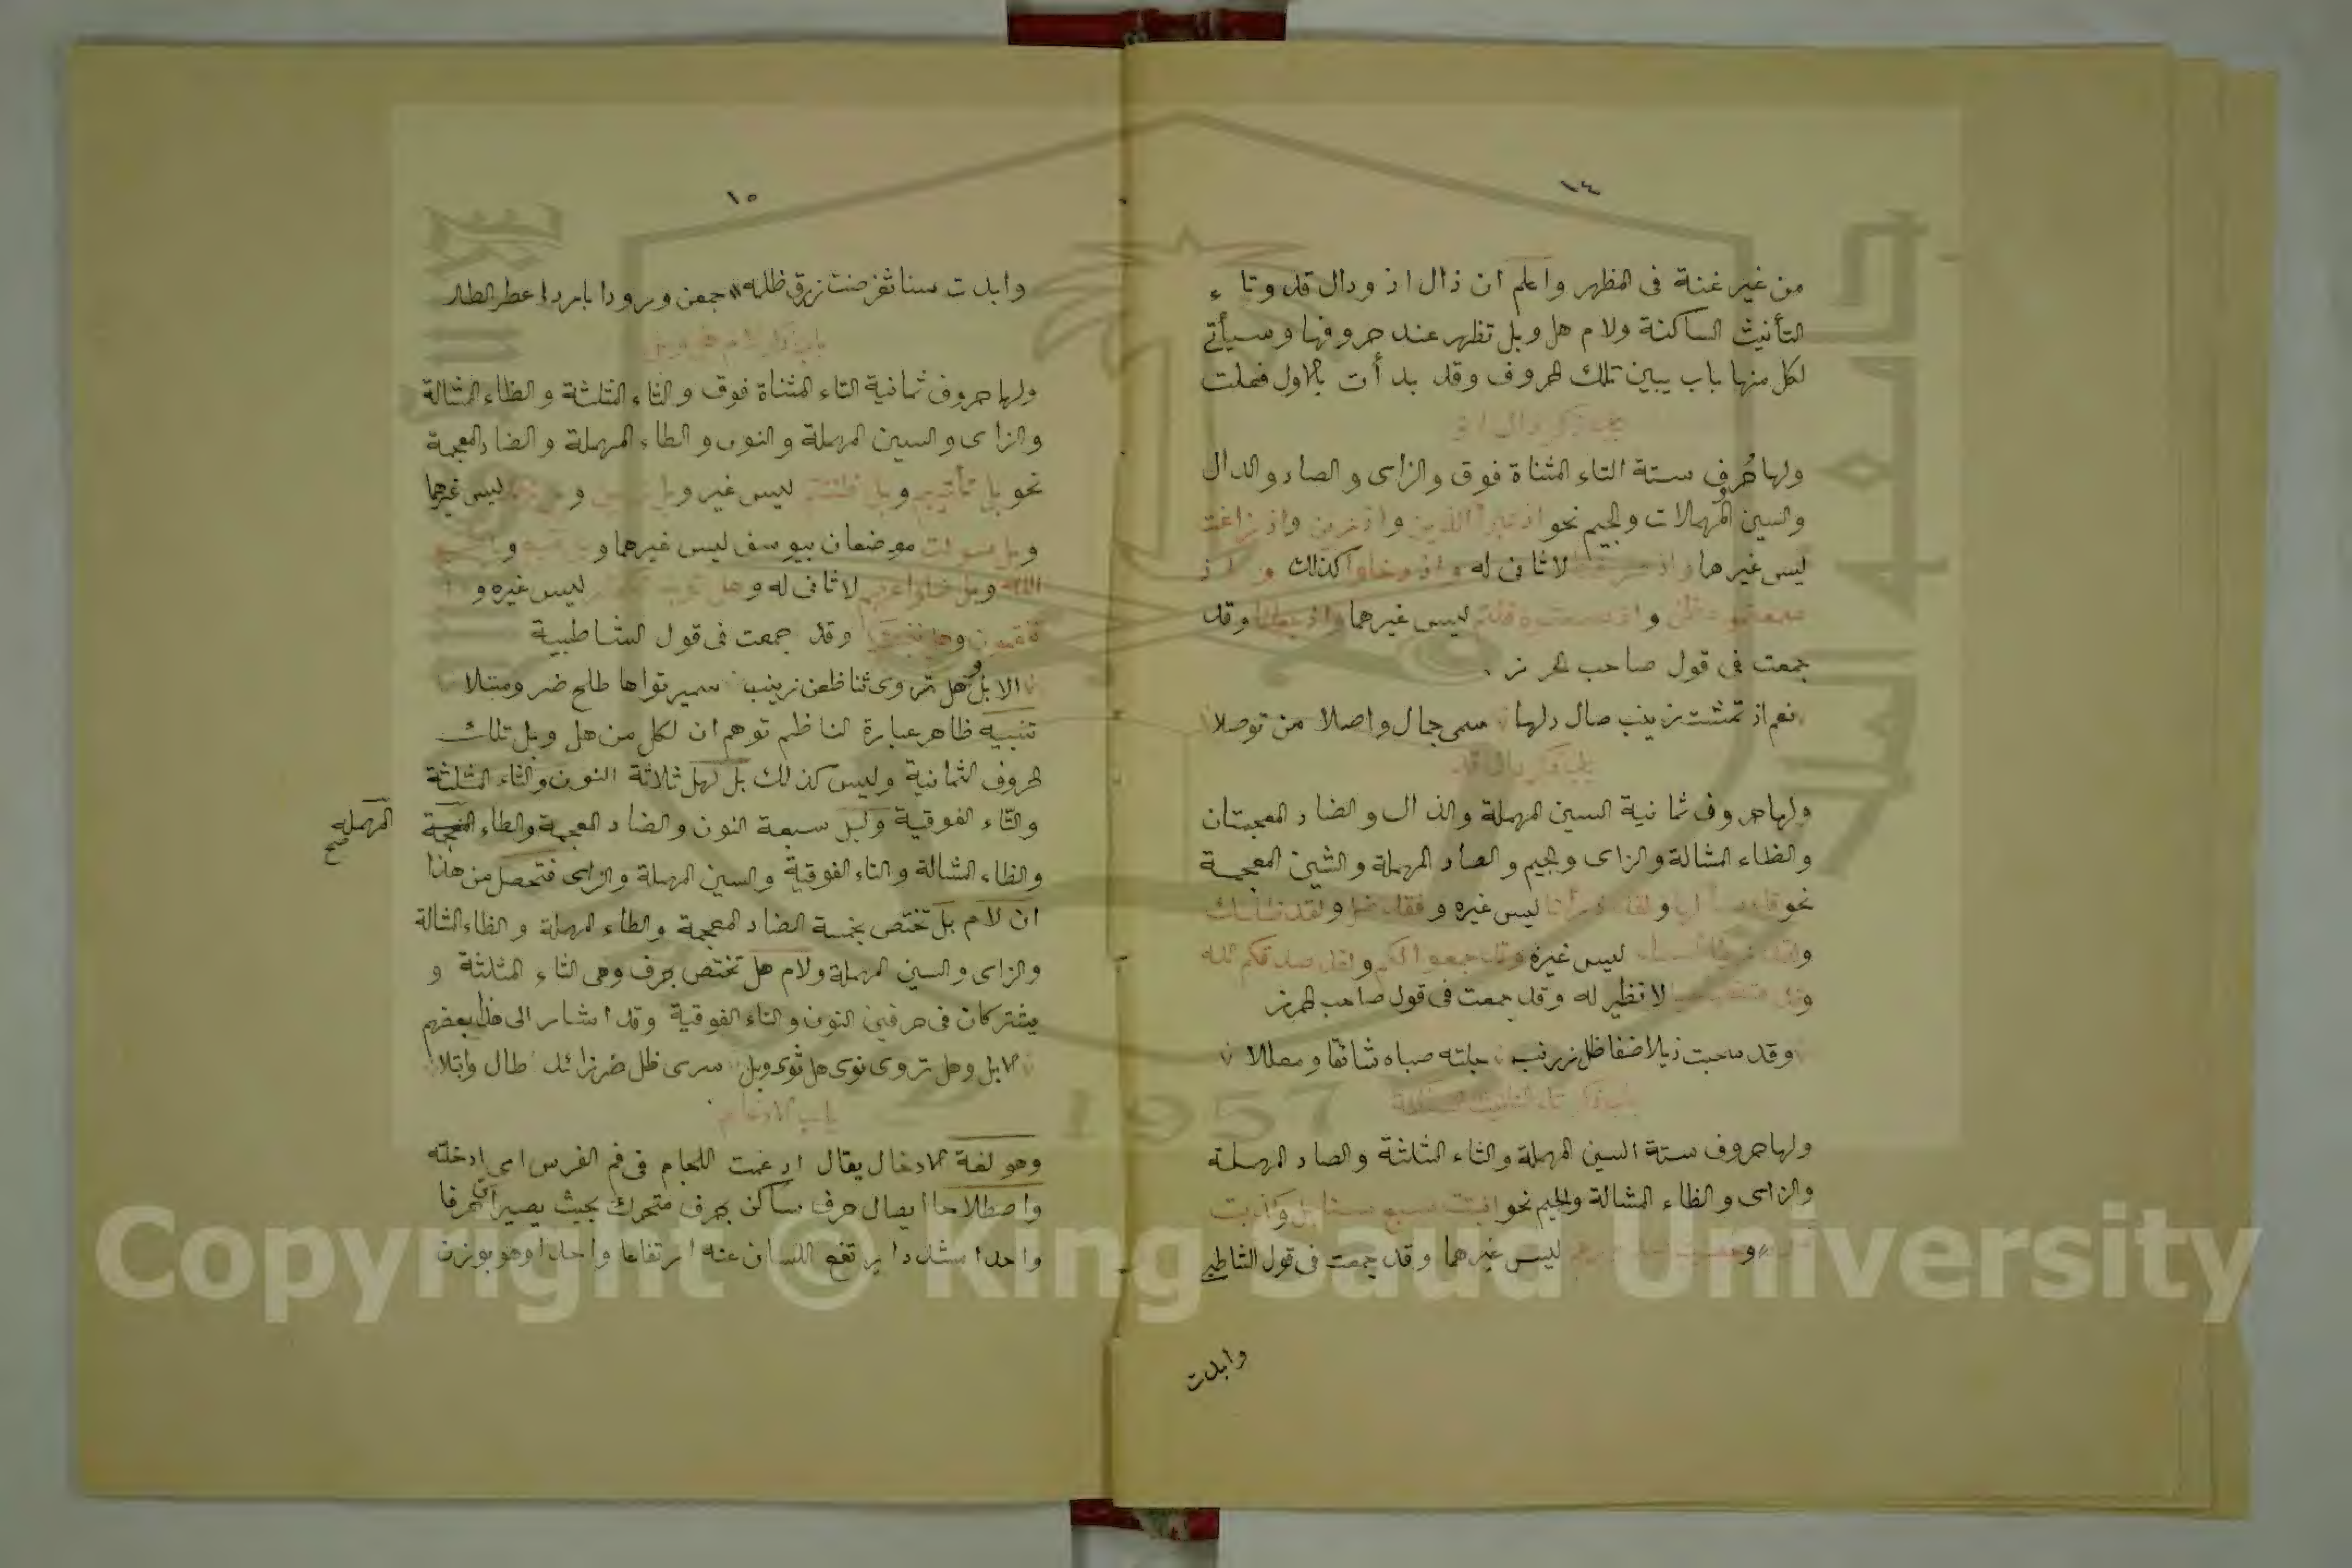 ١٤
من غير غنة فى المظهر واعلم ان ذال اذ ودال قد وتاء
التأنيث الساكنة ولام هل وبل تظهر عند حروفها وسيأتى
لكل منها باب يبين تلك الحروف وقد بدأت بالاول فقلت
باب ذكر ذال اذ
ولها حُرُف ستة التاء المثناة فوق والزاى والصاد والدال
والسين المهملات والجيم نحو اذ تبرأ الذين واذ زين واذ زاغت
ليس غيرها واذ صرفنا لا ثانى له واذ دخلوا كذلك و اذ
سمعتموه ظن و اذ سمعتموه قلتم ليس غيرهما واذ جعلنا وقد
جمعت فى قول صاحب الحرز
نعم اذ تمشت زينب صال دلها سمى جمال واصلا من توصلا
باب ذكر دال قد
ولها حروف ثمانية السين المهملة والذال والضاد المعجمتان
والظاء المشالة والزاى والجيم والصاد المهملة والشين المعجمة
نحو قد سألها ولقد ذرأنا ليس غيره وفقد ضل ولقد ظلمك
ولقد زينا السماء ليس غيره وقد جمعوا لكم ولقد صدقكم الله
وقد شغفها حبا لا نظير له وقد جمعت فى قول صاحب الحرز
وقد سحبت ذيلا ضفا ظل زرنب جلته صباه شائقا ومعللا
باب ذكر تاء التانيث الساكنة
ولها حروف ستة السين المهملة والثاء المثلثة والصاد المهملة
والزاى والظاء المشالة والجيم نحو انبتت سبع سنابل وكذبت
ليس غيرهما وقد جمعت فى قول الشاطبى
وابدت
١٥
وابدت سنا ثغر صفت زرق ظلمه جمعن ورودا باردا عطر الطلا
باب ذكر لام هل وبل
ولها حروف ثمانية التاء المثناة فوق والثاء المثلثة والظاء المشالة
والزاى والسين المهملة والنون والطاء المهملة والضاد المعجمة
نحو بل تأتيهم وبل ظننتم ليس غير وبل زين و ليس غيرهما
وبل سولت موضعان بيوسف ليس غيرهما و بل نتبع و بل طبع
الله وبل ضلوا عنهم لا ثانى له وهل ثوب الكفار ليس غيره و
تنقمون وهل ننبئكم وقد جمعت فى قول الشاطبية
الا بل وهل تروى ثنا ظعن زينب سمير نواها طلح ضر ومبتلا
تنبيه ظاهر عبارة الناظم توهم ان لكل من هل وبل تلك
الحروف الثمانية وليس كذلك بل لهل ثلاثة النون والثاء المثلثة
والتاء الفوقية ولبل سبعة النون والضاد المعجمة والطاء المعجمة
المهملة صح
والظاء المشالة والتاء الفوقية والسين المهملة والزاى فتحصل من هذا
ان لام بل تختص بخمسة الضاد المعجمة والطاء المهملة والظاء المشالة
والزاى والسين المهملة ولام هل تختص بحرف وهى الثاء المثلثة و
يشتركان فى حرفين النون والتاء الفوقية وقد اشار الى هذا بعضهم
الا بل وهل تروى نوى هل ثوى وبل سرى ظل ضر زائد طال وابتلا
باب الادغام
وهو لغة الادخال يقال ادغمت اللجام فى فم الفرس اى ادخلته
واصطلاحا ايصال حرف ساكن بحرف متحرك بحيث يصيران حرفا
واحدا مشددا يرتفع اللسان عنه ارتفاعا واحدا وهو بوزن
1957
Copyright © King Saud University